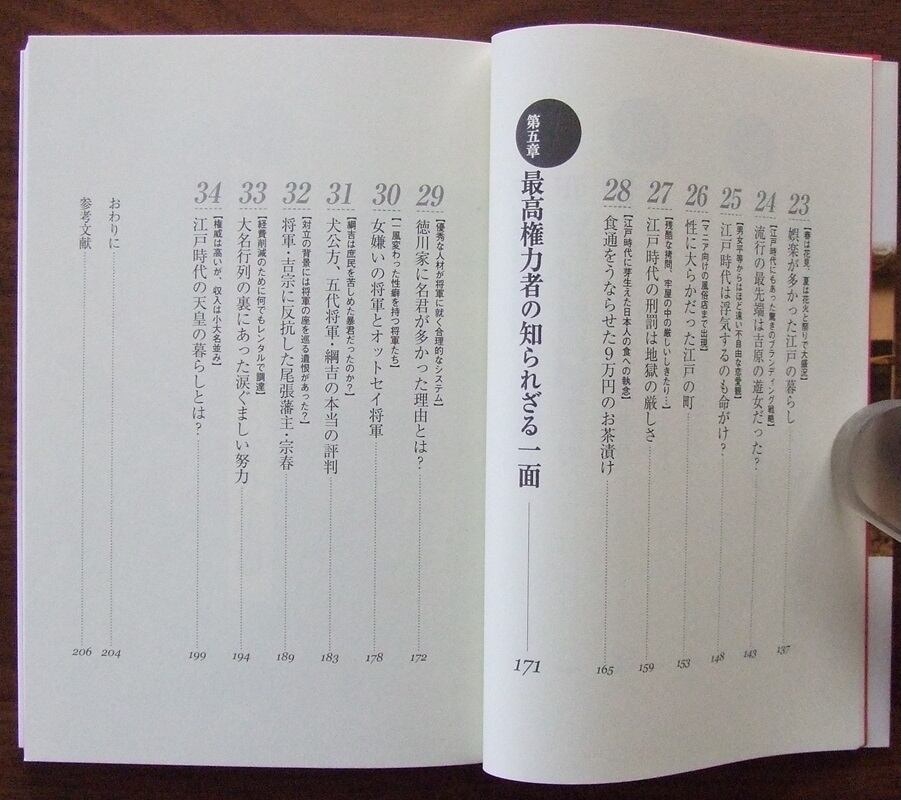 23
【春は花見、夏は花火と祭りで大盛況】
娯楽が多かった江戸の暮らし
137
24
【江戸時代にもあった驚きのブランディング戦略】
流行の最先端は吉原の遊女だった?
143
25
【男女平等からはほど遠い不自由な恋愛観】
江戸時代は浮気するのも命がけ?
148
26
【マニア向けの風俗店まで出現】
性に大らかだった江戸の町
153
27
【残酷な拷問、牢屋の中の厳しいしきたり…】
江戸時代の刑罰は地獄の厳しさ
159
28
【江戸時代に芽生えた日本人の食への執念】
食通をうならせた9万円のお茶漬け
165
第五章
最高権力者の知られざる一面
171
29
【優秀な人材が将軍に就く合理的なシステム】
徳川家に名君が多かった理由とは?
172
30
【一風変わった性癖を持つ将軍たち】
女嫌いの将軍とオットセイ将軍
178
31
【綱吉は庶民を苦しめた暴君だったのか?】
犬公方、五代将軍・綱吉の本当の評判
183
32
【対立の背景には将軍の座を巡る遺恨があった?】
将軍・吉宗に反抗した尾張藩主・宗春
189
33
【経費削減のために何でもレンタルで調達】
大名行列の裏にあった涙ぐましい努力
194
34
【権威は高いが、収入は小大名並み】
江戸時代の天皇の暮らしとは?
199
おわりに
204
参考文献
206